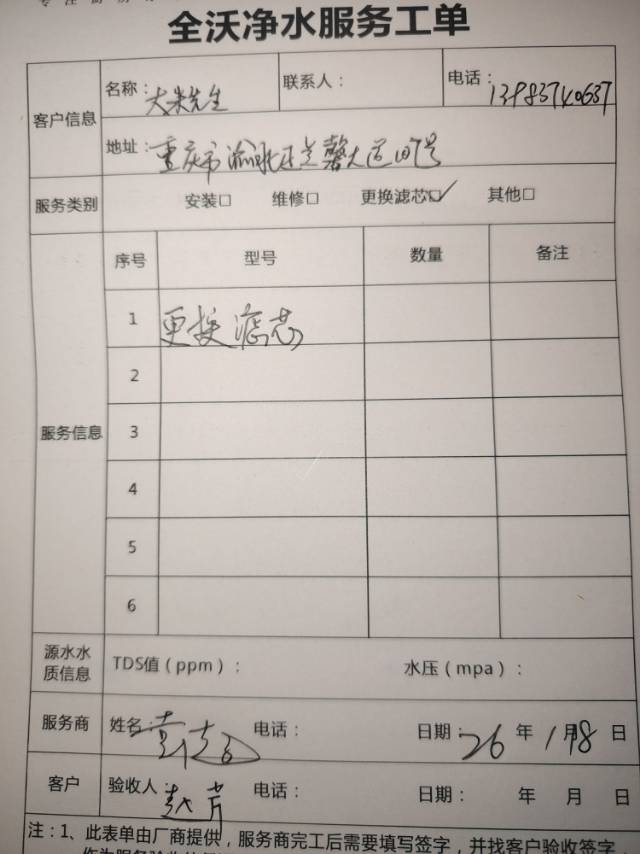 全沃净水服务工单
客户信息
名称：大米先生 联系人： 电话：13983740637
地址：重庆市渝北区兰馨大道107号
服务类别 安装□ 维修□ 更换滤芯☑ 其他□
服务信息
序号 型号 数量 备注
1 更换滤芯
2
3
4
5
6
源水水质信息 TDS值（ppm）： 水压（mpa）：
服务商 姓名： 电话： 日期：26 年 1月8日
客户 验收人： 电话： 日期： 年 月 日
注：1、此表单由厂商提供，服务商完工后需要填写签字，并找客户验收签字，